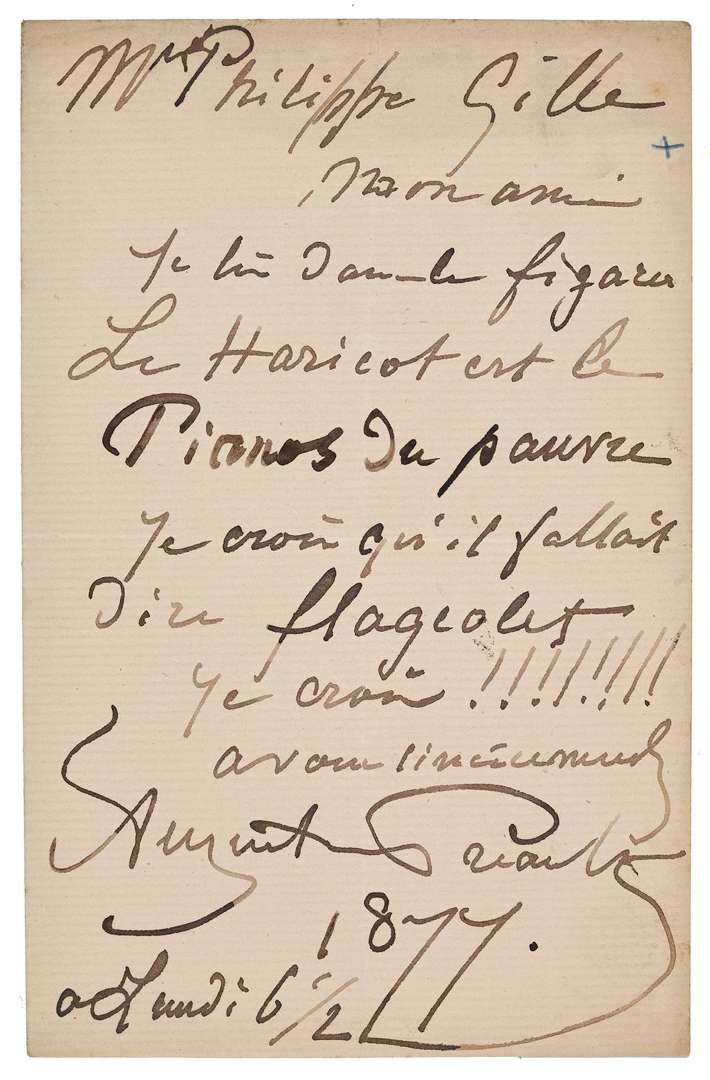 Mr Philippe Gille
mon ami
Je lis dans le figaro
Le Haricot est le
Pianos du pauvre
Je crois qu'il fallait
Dire flageolet
Je crois !!!!!!!!
a vous sincèrement
Auguste Préault
1877.
Lundi 6 1/2